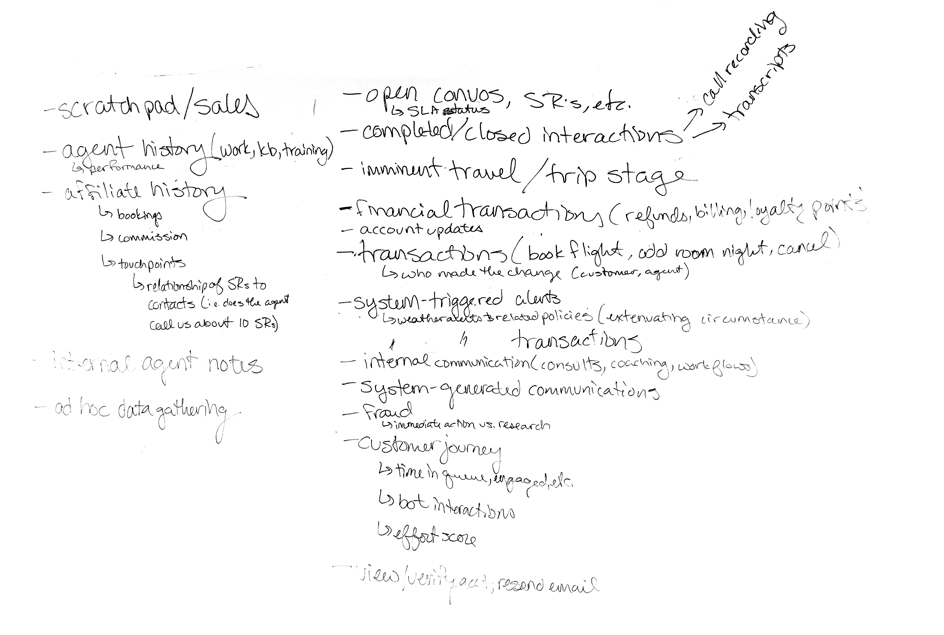 - scratchpad/sales
- agent history (work, kb, training)
↳ performance
- affiliate history
↳ bookings
↳ commission
↳ touchpoints
↳ relationship of SRs to
contacts (i.e. does the agent
call us about 10 SRs)
- internal agent notes
- ad hoc data gathering
- open convos, SR's, etc.
↳ SLA status
- completed/closed interactions
→ call recording
→ transcripts
- imminent travel / trip stage
- financial transactions (refunds, billing, loyalty points
- account updates
- transactions (book flight, add room night, cancel)
↳ who made the change (customer, agent)
- system-triggered alerts
↳ weather alerts to related policies (extenuating circumstance)
transactions
- internal communication (consults, coaching, workflows)
- system-generated communications
- fraud
↳ immediate action vs. research
- customer journey
↳ time in queue, engaged, etc.
↳ bot interactions
↳ effort score
- view/verify acct, resend email